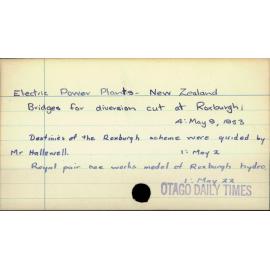 Electric Power Plants - New Zealand
Bridges for diversion cut at Roxburgh;
4: May 9, 1953
Destinies of the Roxburgh scheme were guided by
Mr Hallewell. 1: May 2
Royal pair see works model of Roxburgh hydro
1: May 22
OTAGO DAILY TIMES